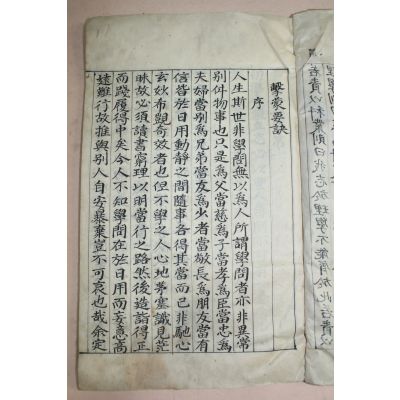 擊蒙要訣
序
人生斯世非學問無以爲人所謂學問者亦非異常
別件物事也只是爲父當慈爲子當孝爲臣當忠爲
夫婦當別爲兄弟當友爲少者當敬長爲朋友當有
信皆於日用動靜之間隨事各得其當而已非馳心
玄妙希覬奇效者也但不學之人心地茅塞識見茫
昧故必須讀書窮理以明當行之路然後造詣得正
而踐履得中矣今人不知學問在於日用而妄意高
遠難行故推與別人自安暴棄豈不可哀也哉余定
若貴以科業則曰我志於理學不能屑於此若貴以